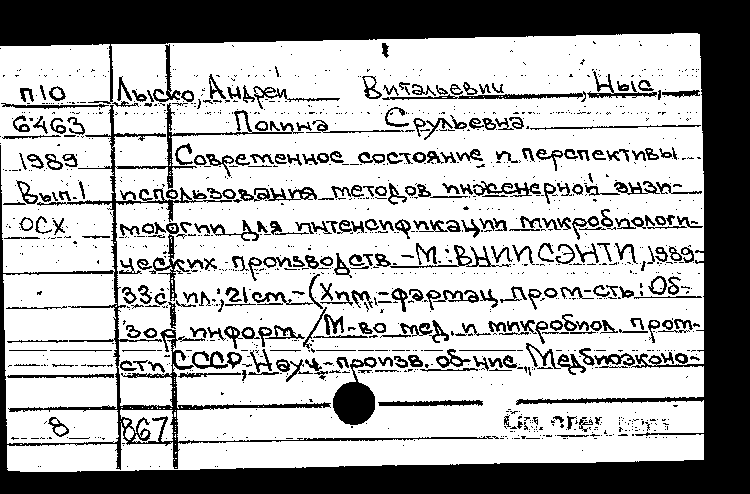 П10 Лыско, Андрей Витальевич, Ныс,
6463 Полина Срульевна.
1989 Современное состояние и перспективы
Вып.1 использования методов инженерной энзи-
ОСХ мологии для интенсификации микробиологи-
ческих производств. - М.: ВНИИСЭНТИ, 1989-
33с. ил.; 21 см. - (Хим.-фармац. пром-сть: Об-
зор. информ. / М-во мед. и микробиол. пром-
сти СССР, Науч.-произв. об-ние "Медбиоэконо-
8 867 См. след.